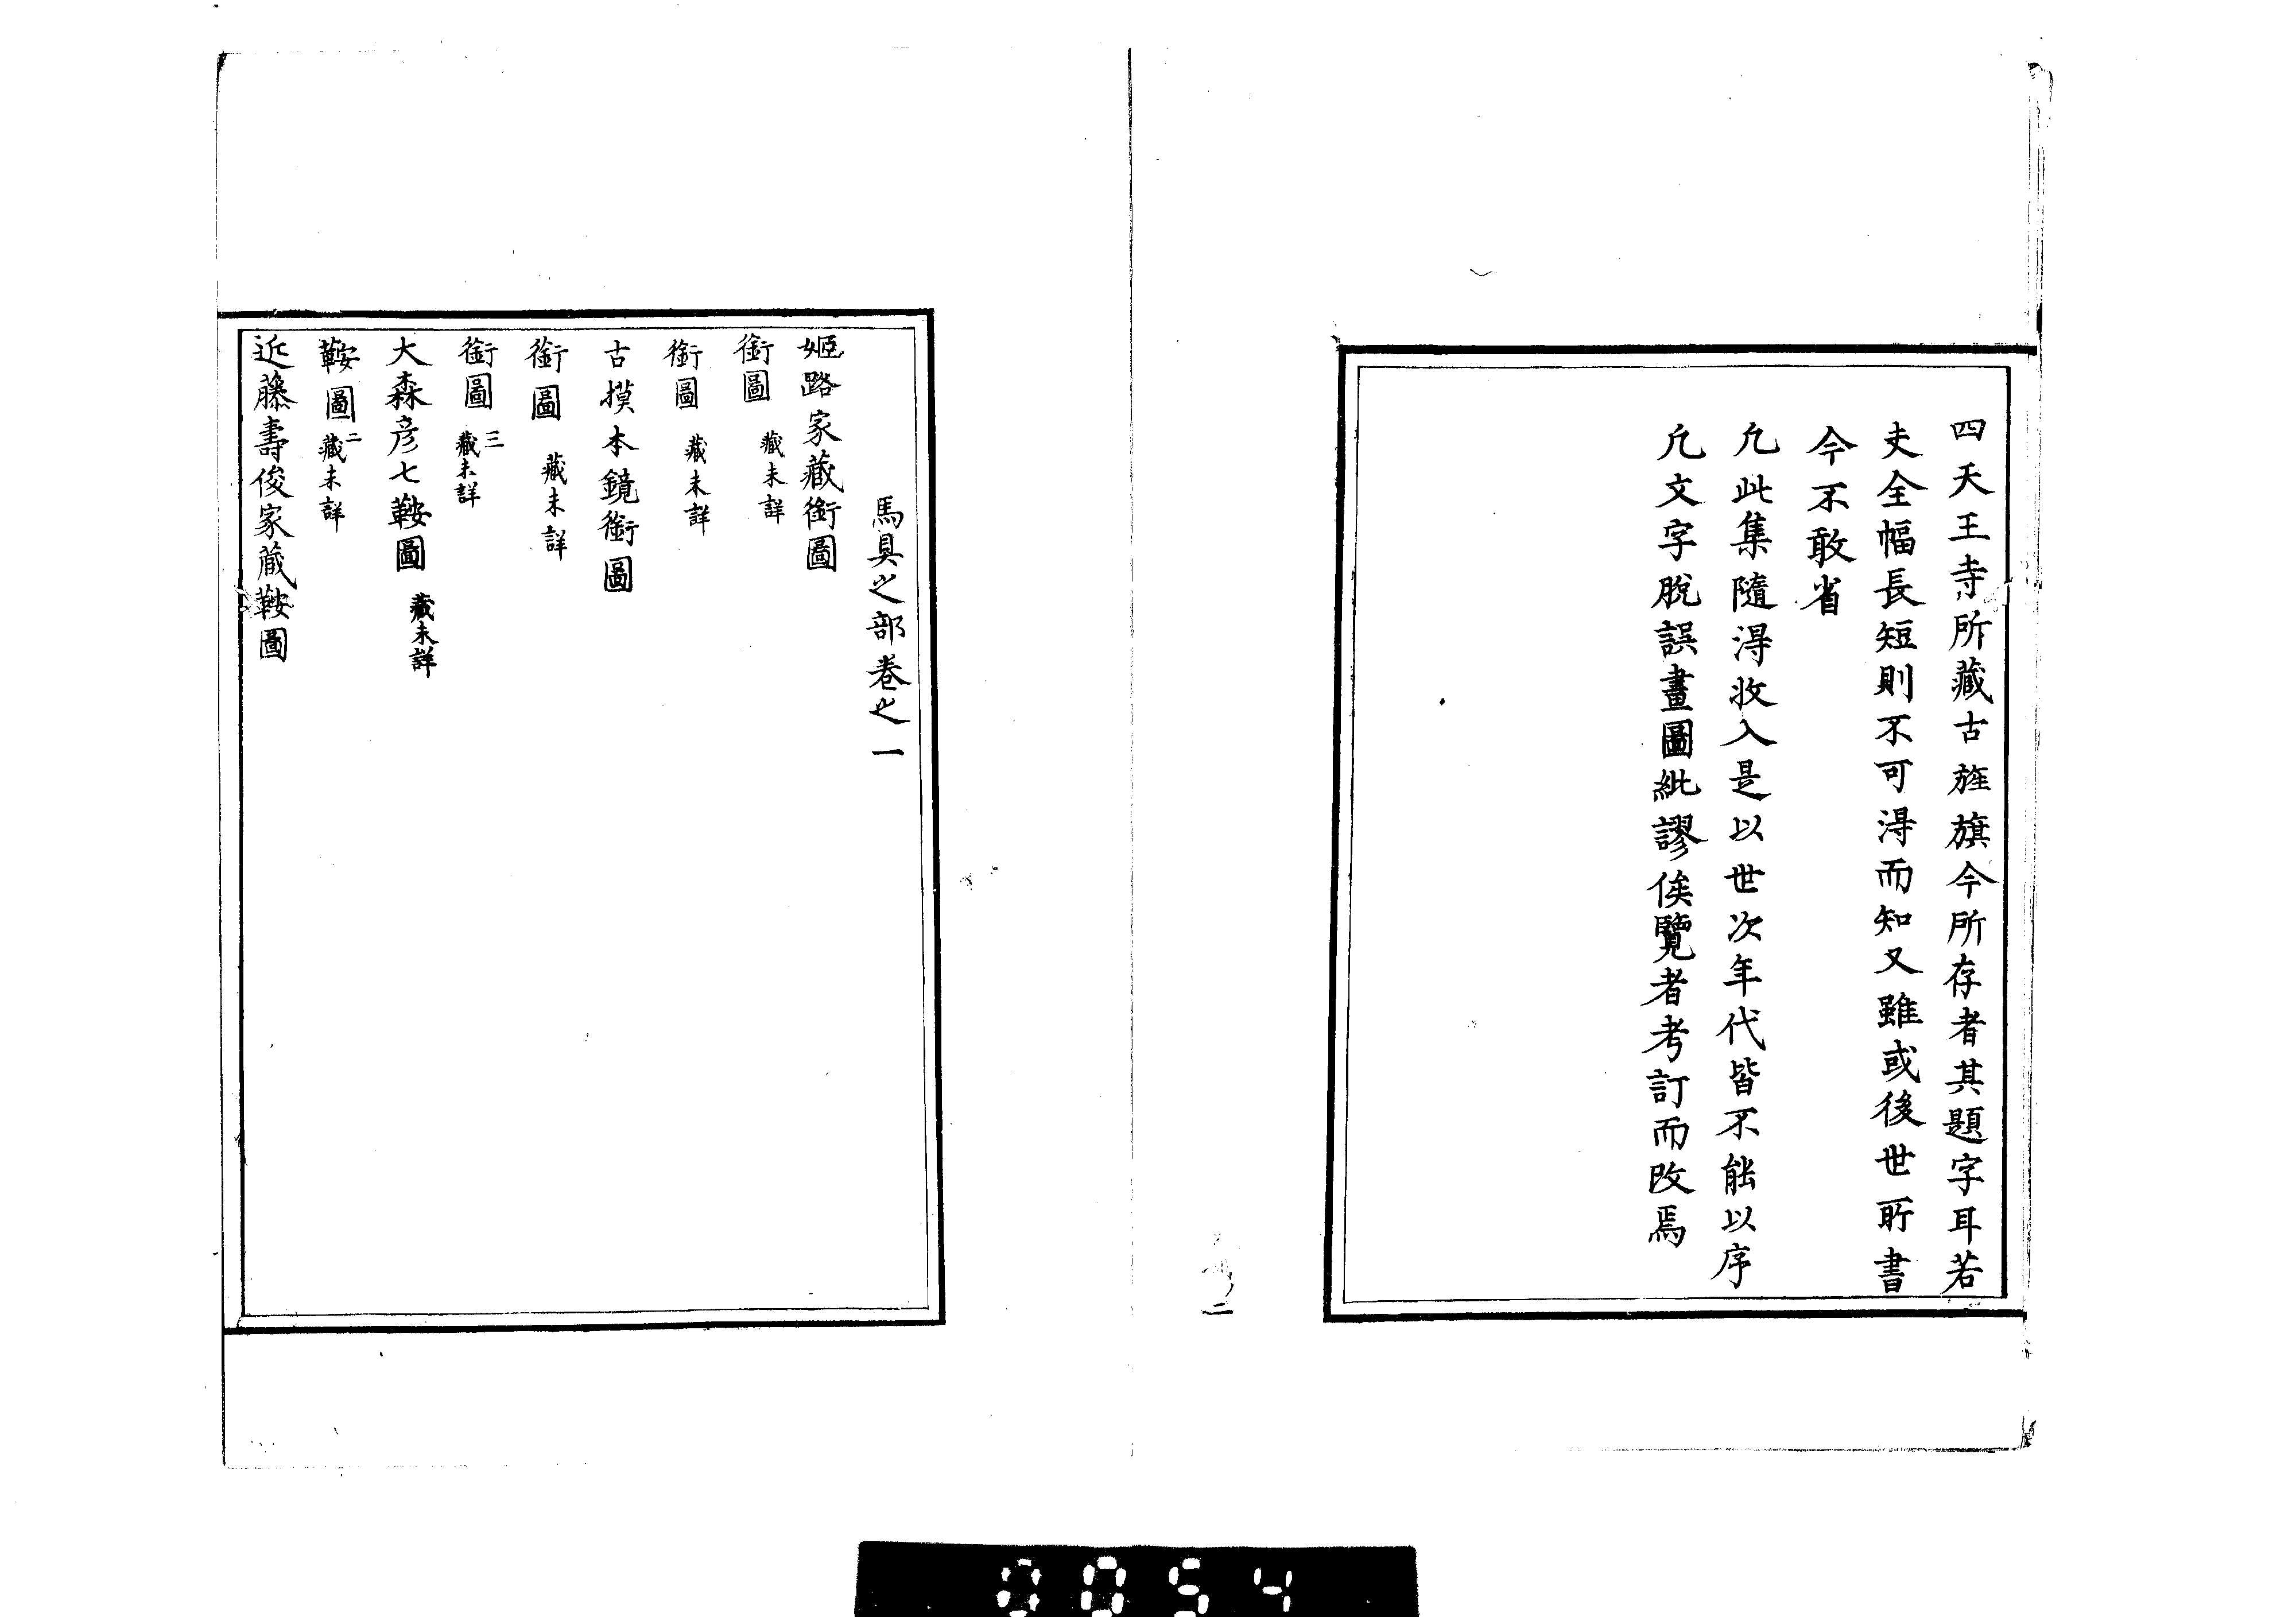 四天王寺所藏古旌旗今所存者其題字耳若
夫全幅長短則不可得而知又雖或後世所書
今不敢省
凢此集隨得收入是以世次年代皆不能以序
凢文字脫誤畫圖紕謬俟覽者考訂而改焉
二
馬具之部卷之一
姬路家藏銜圖
銜圖 藏未詳
銜圖 藏未詳
古摸本鏡銜圖
銜圖 藏未詳
銜圖 三藏未詳
大森彦七鞍圖 藏未詳
鞍圖 二藏未詳
近藤壽俊家藏鞍圖
0054